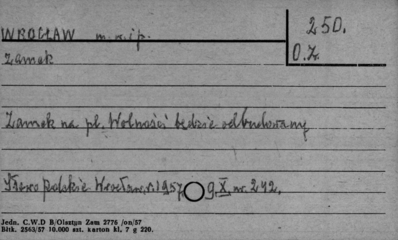 WROCŁAW m.w.ip.
250.
Zamek
O.Z.
Zamek na pl. Wolności będzie odbudowany
Słowo Polskie Wrocław, r. 1957 9.X. nr. 242.
Jedn. C.W.D B/Olsztyn Zam 2776 /on/57
Bibk. 2563/57 10.000 szt. karton kl. 7 g 220.